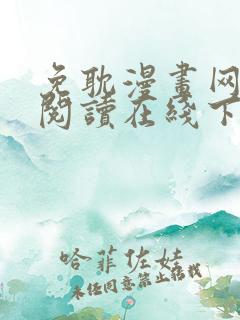 免耽漫畫网
閱讀在綫下
哈菲佐娃
未经同意禁止转载